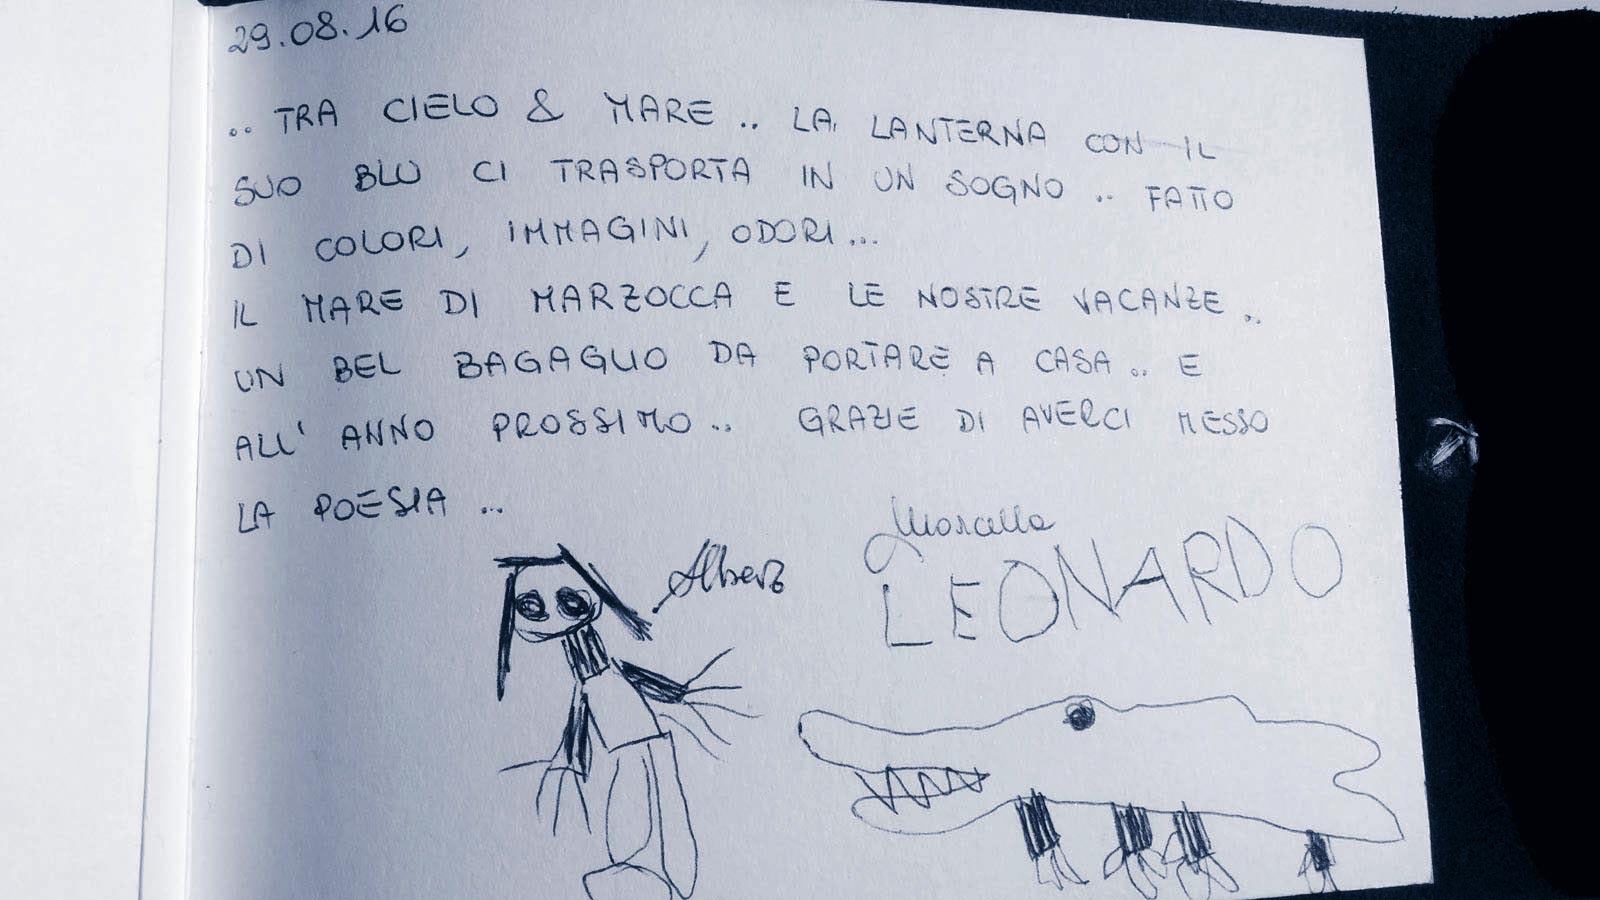 29.08.16
.. TRA CIELO & MARE .. LA LANTERNA CON IL
SUO BLU CI TRASPORTA IN UN SOGNO .. FATTO
DI COLORI, IMMAGINI, ODORI...
IL MARE DI MARZOCCA E LE NOSTRE VACANZE ..
UN BEL BAGAGLIO DA PORTARE A CASA .. E
ALL' ANNO PROSSIMO .. GRAZIE DI AVERCI MESSO
LA POESIA ...
Marcella
LEONARDO